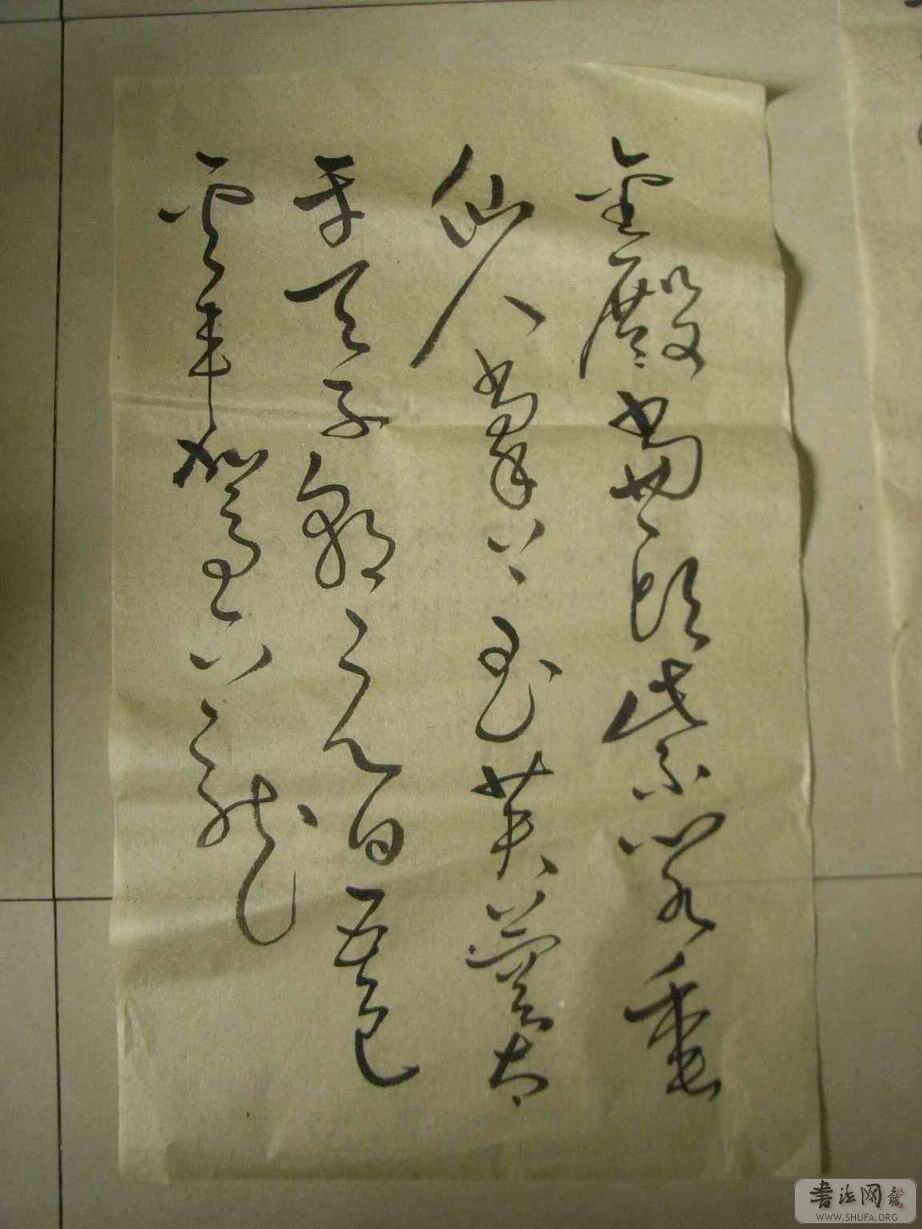 金殿当头紫阁重
仙人掌上玉芙蓉太
平天子朝元日五色
云车驾六龙
书法网
WWW.SHUFA.ORG